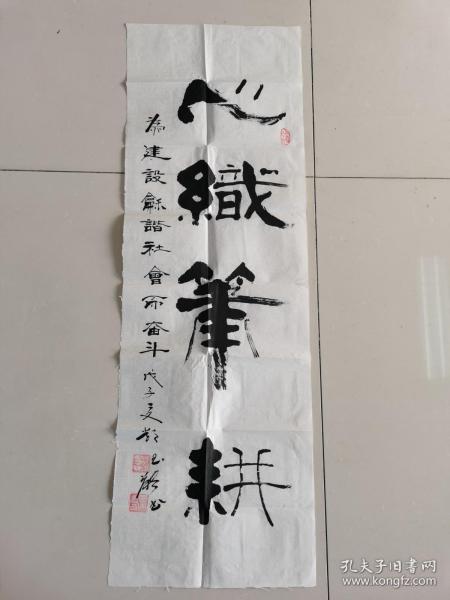 心織筆耕
為建設龢諧社會而奋斗 戊子夏
孔夫子旧书网
www.kongfz.com